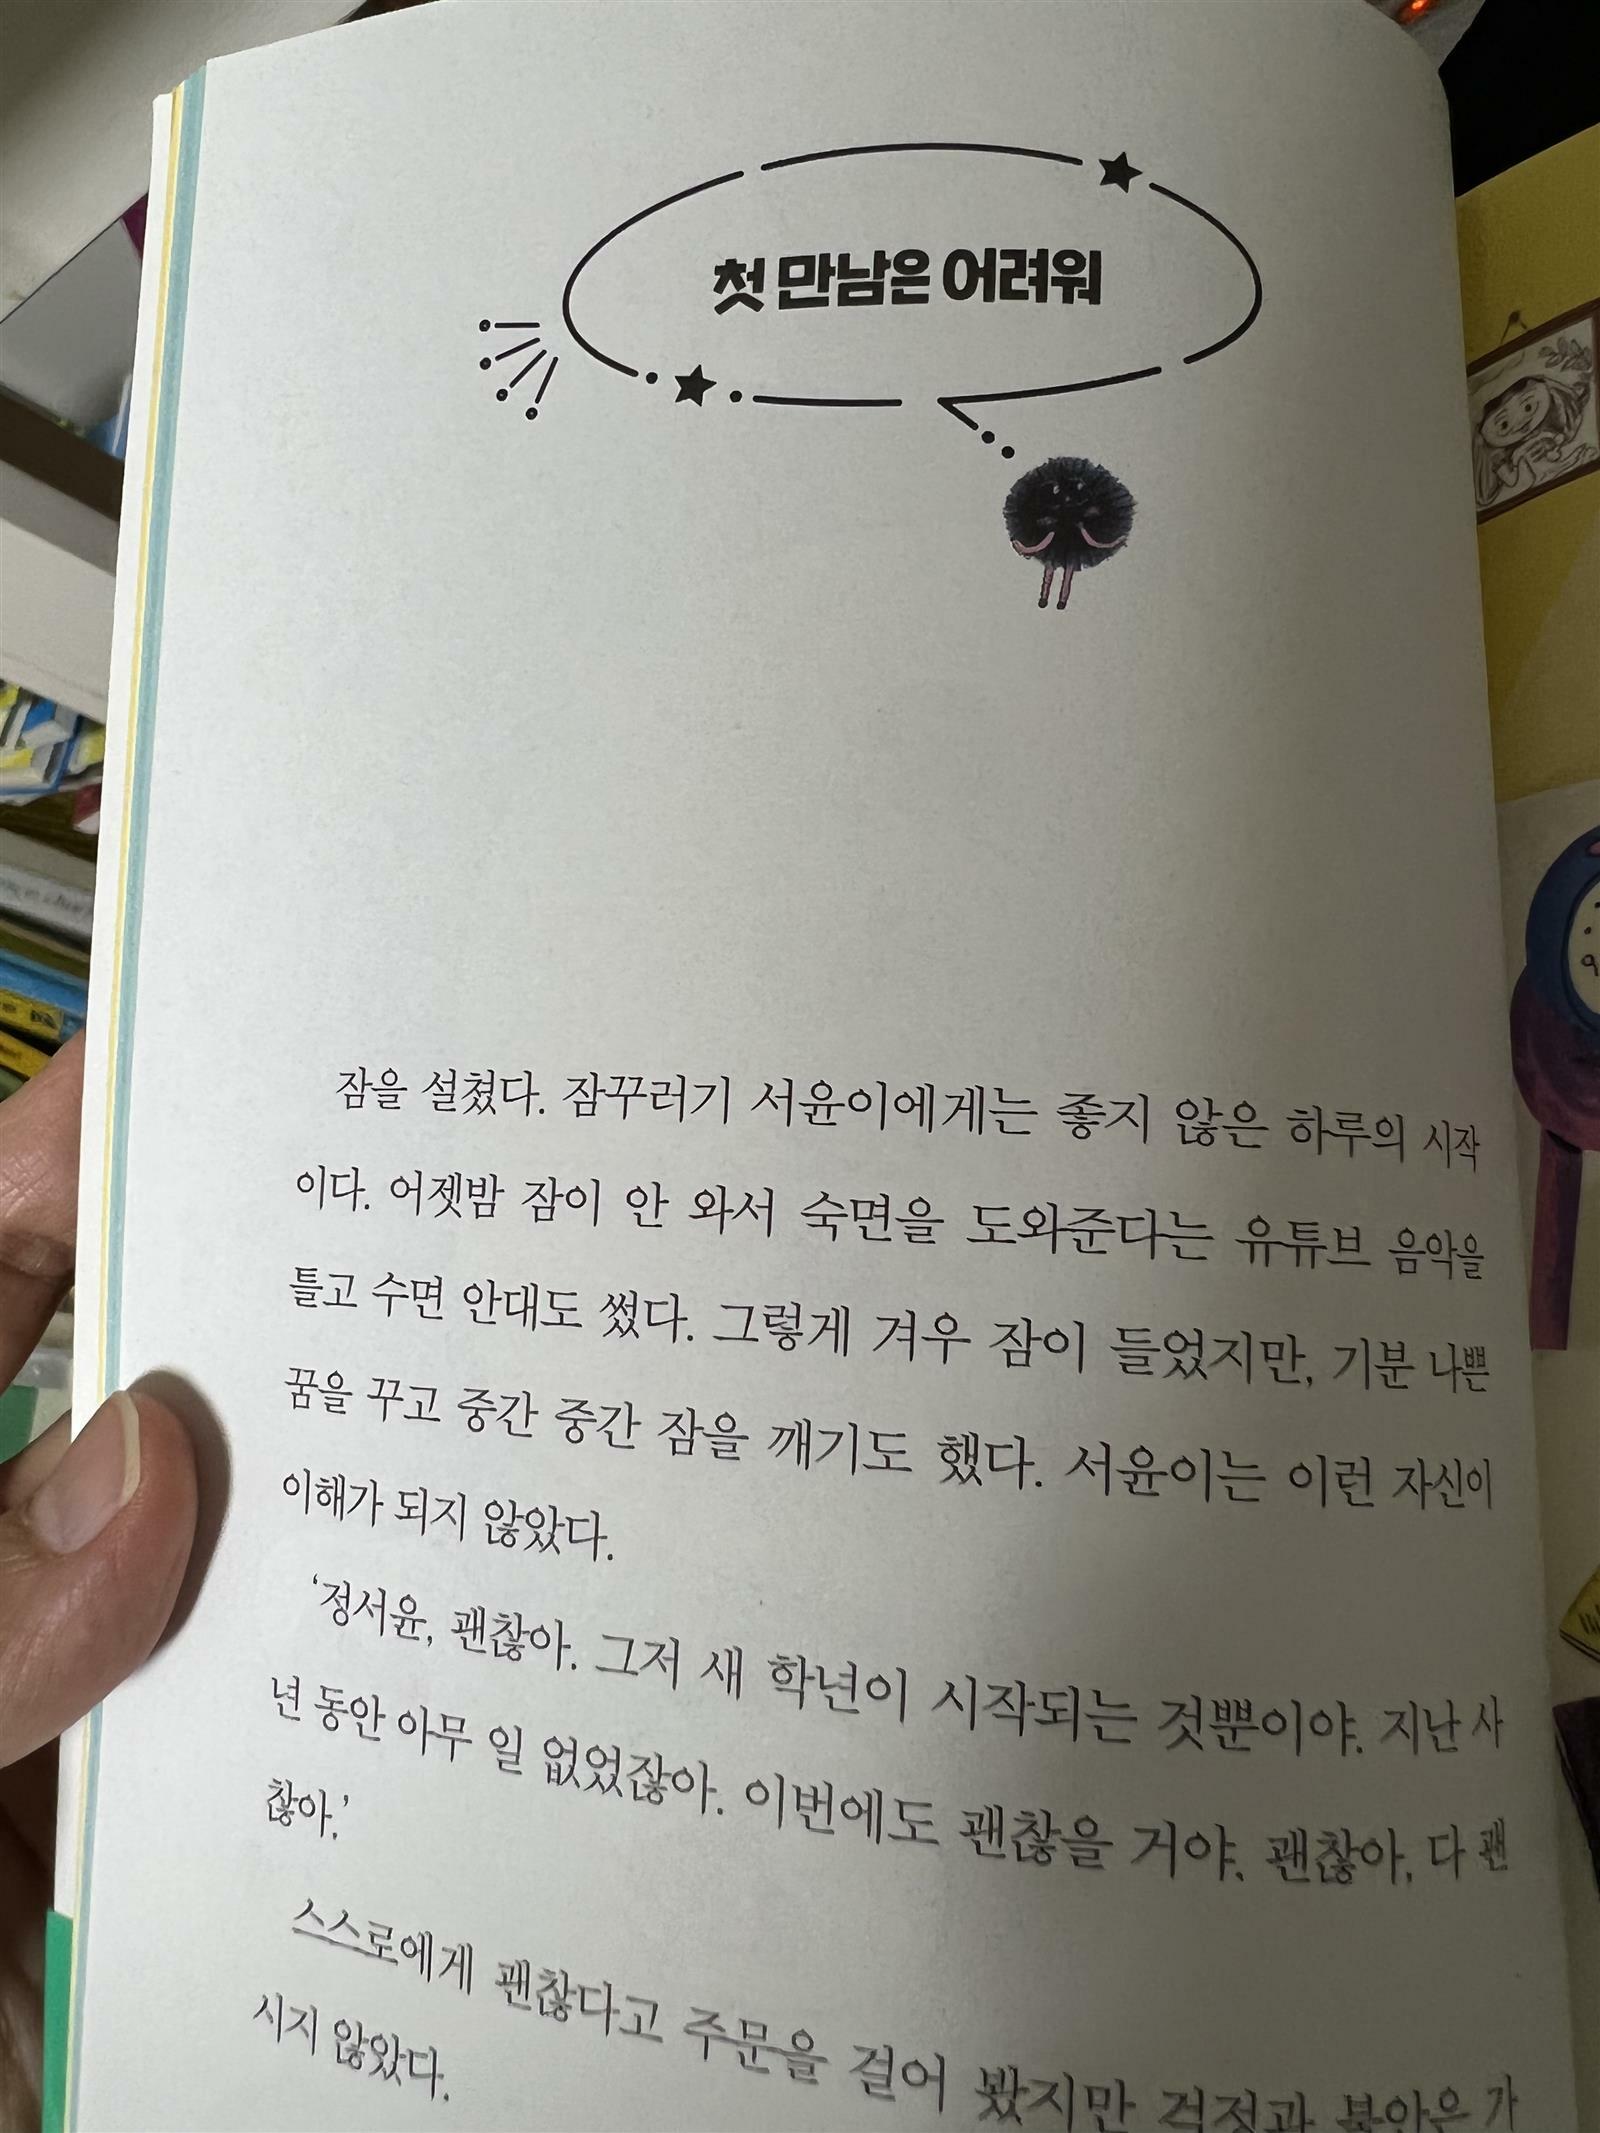 첫 만남은 어려워
잠을 설쳤다. 잠꾸러기 서윤이에게는 좋지 않은 하루의 시작
이다. 어젯밤 잠이 안 와서 숙면을 도와준다는 유튜브 음악을
틀고 수면 안대도 썼다. 그렇게 겨우 잠이 들었지만, 기분 나쁜
꿈을 꾸고 중간 중간 잠을 깨기도 했다. 서윤이는 이런 자신이
이해가 되지 않았다.
‘정서윤, 괜찮아. 그저 새 학년이 시작되는 것뿐이야. 지난 사
년 동안 아무 일 없었잖아. 이번에도 괜찮을 거야. 괜찮아, 다 괜
찮아.’
스스로에게 괜찮다고 주문을 걸어 봤지만 걱정과 불안은 가
시지 않았다.
9